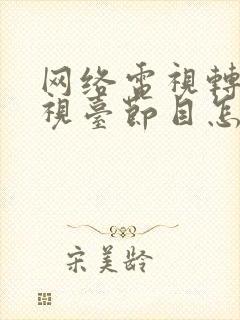 网络電視轉
視臺節目怎
宋美龄